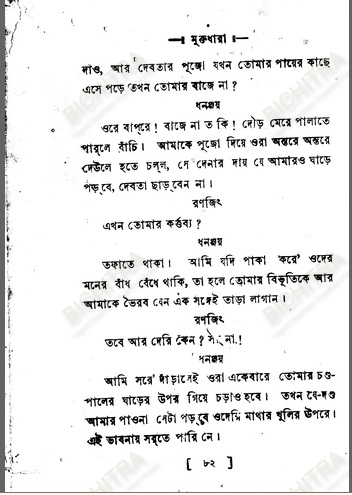 মুক্তধারা
দাও, আর দেবতার পূজো যখন তোমার পায়ের কাছে
এসে পড়ে তখন তোমার বাজে না ?
ধনঞ্জয়
ওরে বাপ্‌রে ! বাজে না ত কি ! দৌড় মেরে পালাতে
পার্‌লে বাঁচি । আমাকে পূজো দিয়ে ওরা অন্তরে অন্তরে
দেউলে হতে চল্‌ল, সে দেনার দায় যে আমারও ঘাড়ে
পড়্‌বে, দেবতা ছাড়্‌বেন না ।
রণজিৎ
এখন তোমার কর্ত্তব্য ?
ধনঞ্জয়
তফাতে থাকা । আমি যদি পাকা করে' ওদের
মনের বাঁধ বেঁধে থাকি, তা হলে তোমার বিভূতিকে আর
আমাকে ভৈরব যেন এক সঙ্গেই তাড়া লাগান ।
রণজিৎ
তবে আর দেরি কেন ? সর না !
ধনঞ্জয়
আমি সরে' দাঁড়ালেই ওরা একেবারে তোমার চণ্ড-
পালের ঘাড়ের উপর গিয়ে চড়াও হবে । তখন যে-দণ্ড
আমার পাওনা সেটা পড়্‌বে ওদেরি মাথার খুলির উপরে ।
এই ভাবনায় সর্‌তে পারি নে ।
[ ৮২ ]
BICHITRA